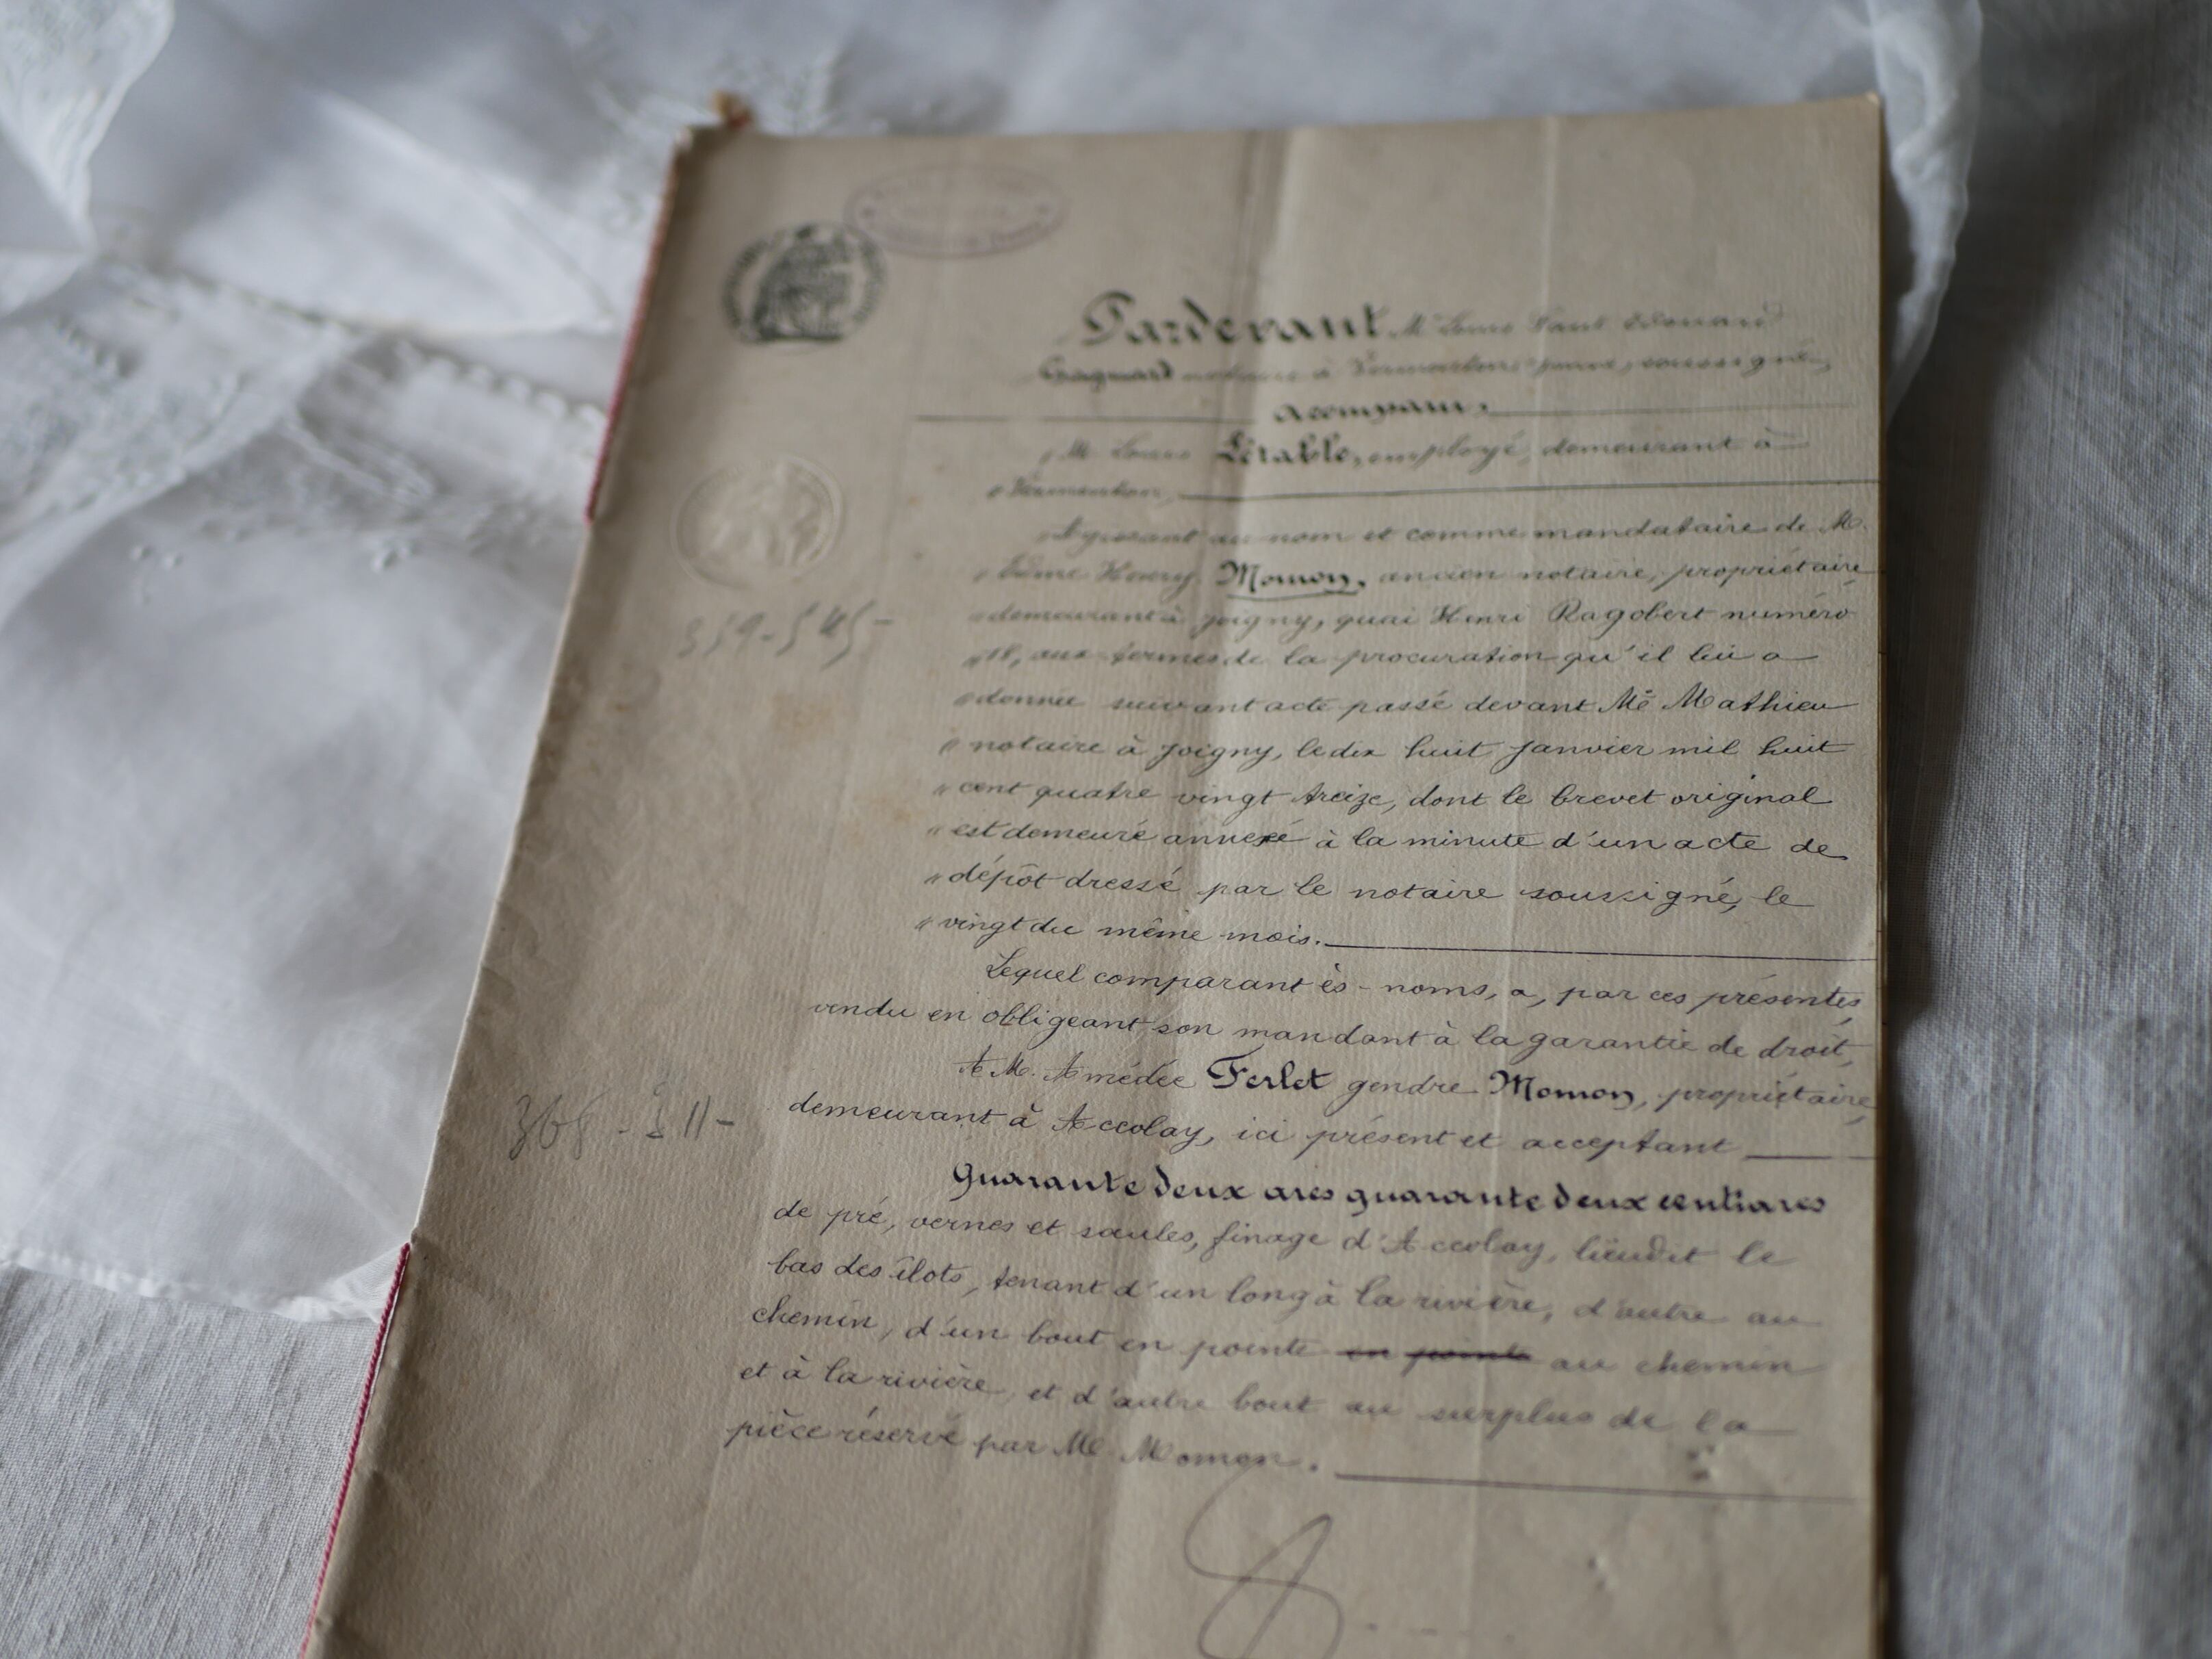 Pardevant Me Louis Paul Edouard
notaire à Vermenton Yonne, soussigné,
A comparu:
M. Louis Lérable, employé, demeurant à
Vermenton,
Agissant au nom et comme mandataire de M.
Edme Henry Momon, ancien notaire, propriétaire
demeurant à Joigny, quai Henri Ragobert numéro
18, aux termes de la procuration qu'il lui a
donnée suivant acte passé devant Me Mathieu
notaire à Joigny, le dix huit Janvier mil huit
cent quatre vingt treize, dont le brevet original
est demeuré annexé à la minute d'un acte de
dépôt dressé par le notaire soussigné, le
vingt du même mois.
Lequel comparant ès-noms, a, par ces présentes,
vendu en obligeant son mandant à la garantie de droit,
A M. Amédée Ferlet gendre Momon, propriétaire,
demeurant à Accolay, ici présent et acceptant
Quarante deux ares quarante deux centiares
de pré, vernes et saules, finage d'Accolay, lieudit le
bas des îlots, tenant d'un long à la rivière, d'autre au
chemin, d'un bout en pointe en pointe au chemin
et à la rivière, et d'autre bout au surplus de la
pièce réservé par M. Momon.